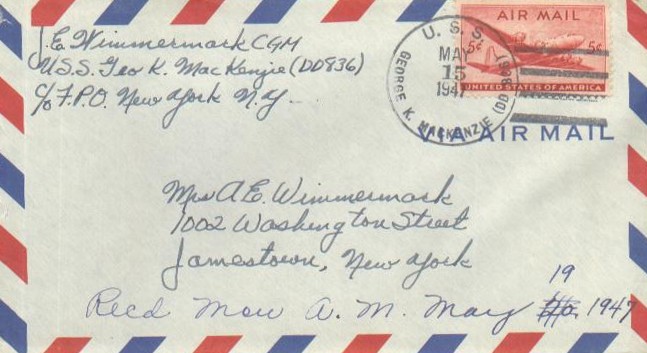 J.E. Wimmermark CGM
U.S.S. Geo K. MacKenzie (DD836)
c/o F.P.O. New York N.Y.
U.S.S.
GEORGE K. MACKENZIE (DD836)
MAY
15
1947
AIR MAIL
5¢ 5¢
UNITED STATES OF AMERICA
VIA AIR MAIL
Mrs A.E. Wimmermark
1002 Washington Street
Jamestown, New York
19
Recd Mon A.M. May 1947